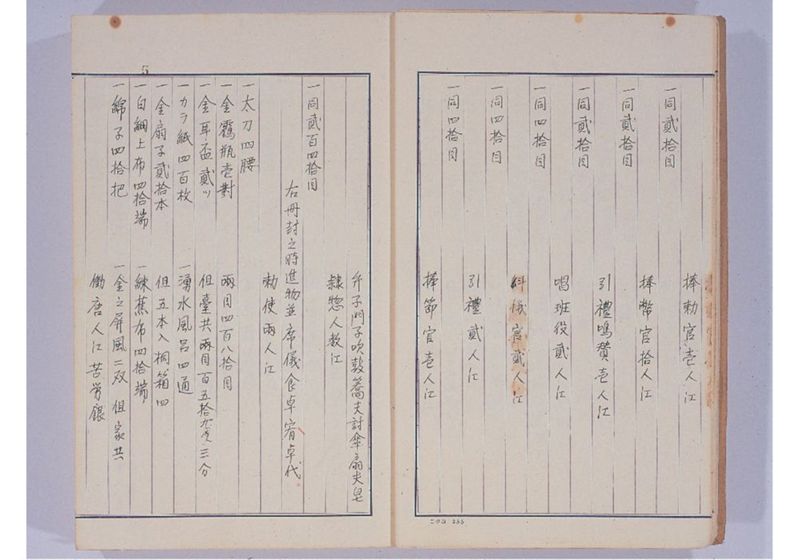 一同貳拾目 捧勅官壱人江
一同貳拾目 捧幣官拾人江
一同貳拾目 引禮鳴賛壱人江
一同四拾目 唱班役貳人江
一同四拾目 糾儀官貳人江
一同四拾目 引禮貳人江
捧節官壱人江
弁子門子吹鼓蕎夫討傘扇夫皂
隷惣人数江
一同貳百四拾目
右冊封之時進物並席儀食卓宥卓代
勅使兩人江
一太刀四腰
一金鶴瓶壱對 兩目四百八拾目
一金耳盃貳ツ 但臺共兩目百五拾九匁三分
一カラ紙四百枚 一湧水風呂四通
一金扇子貳拾本 但五本入桐箱四
一白細上布四拾端 一練蕉布四拾端
一綿子四拾把 一金之屏風二双 但家共
働唐人江苦労銀
二〇日 255